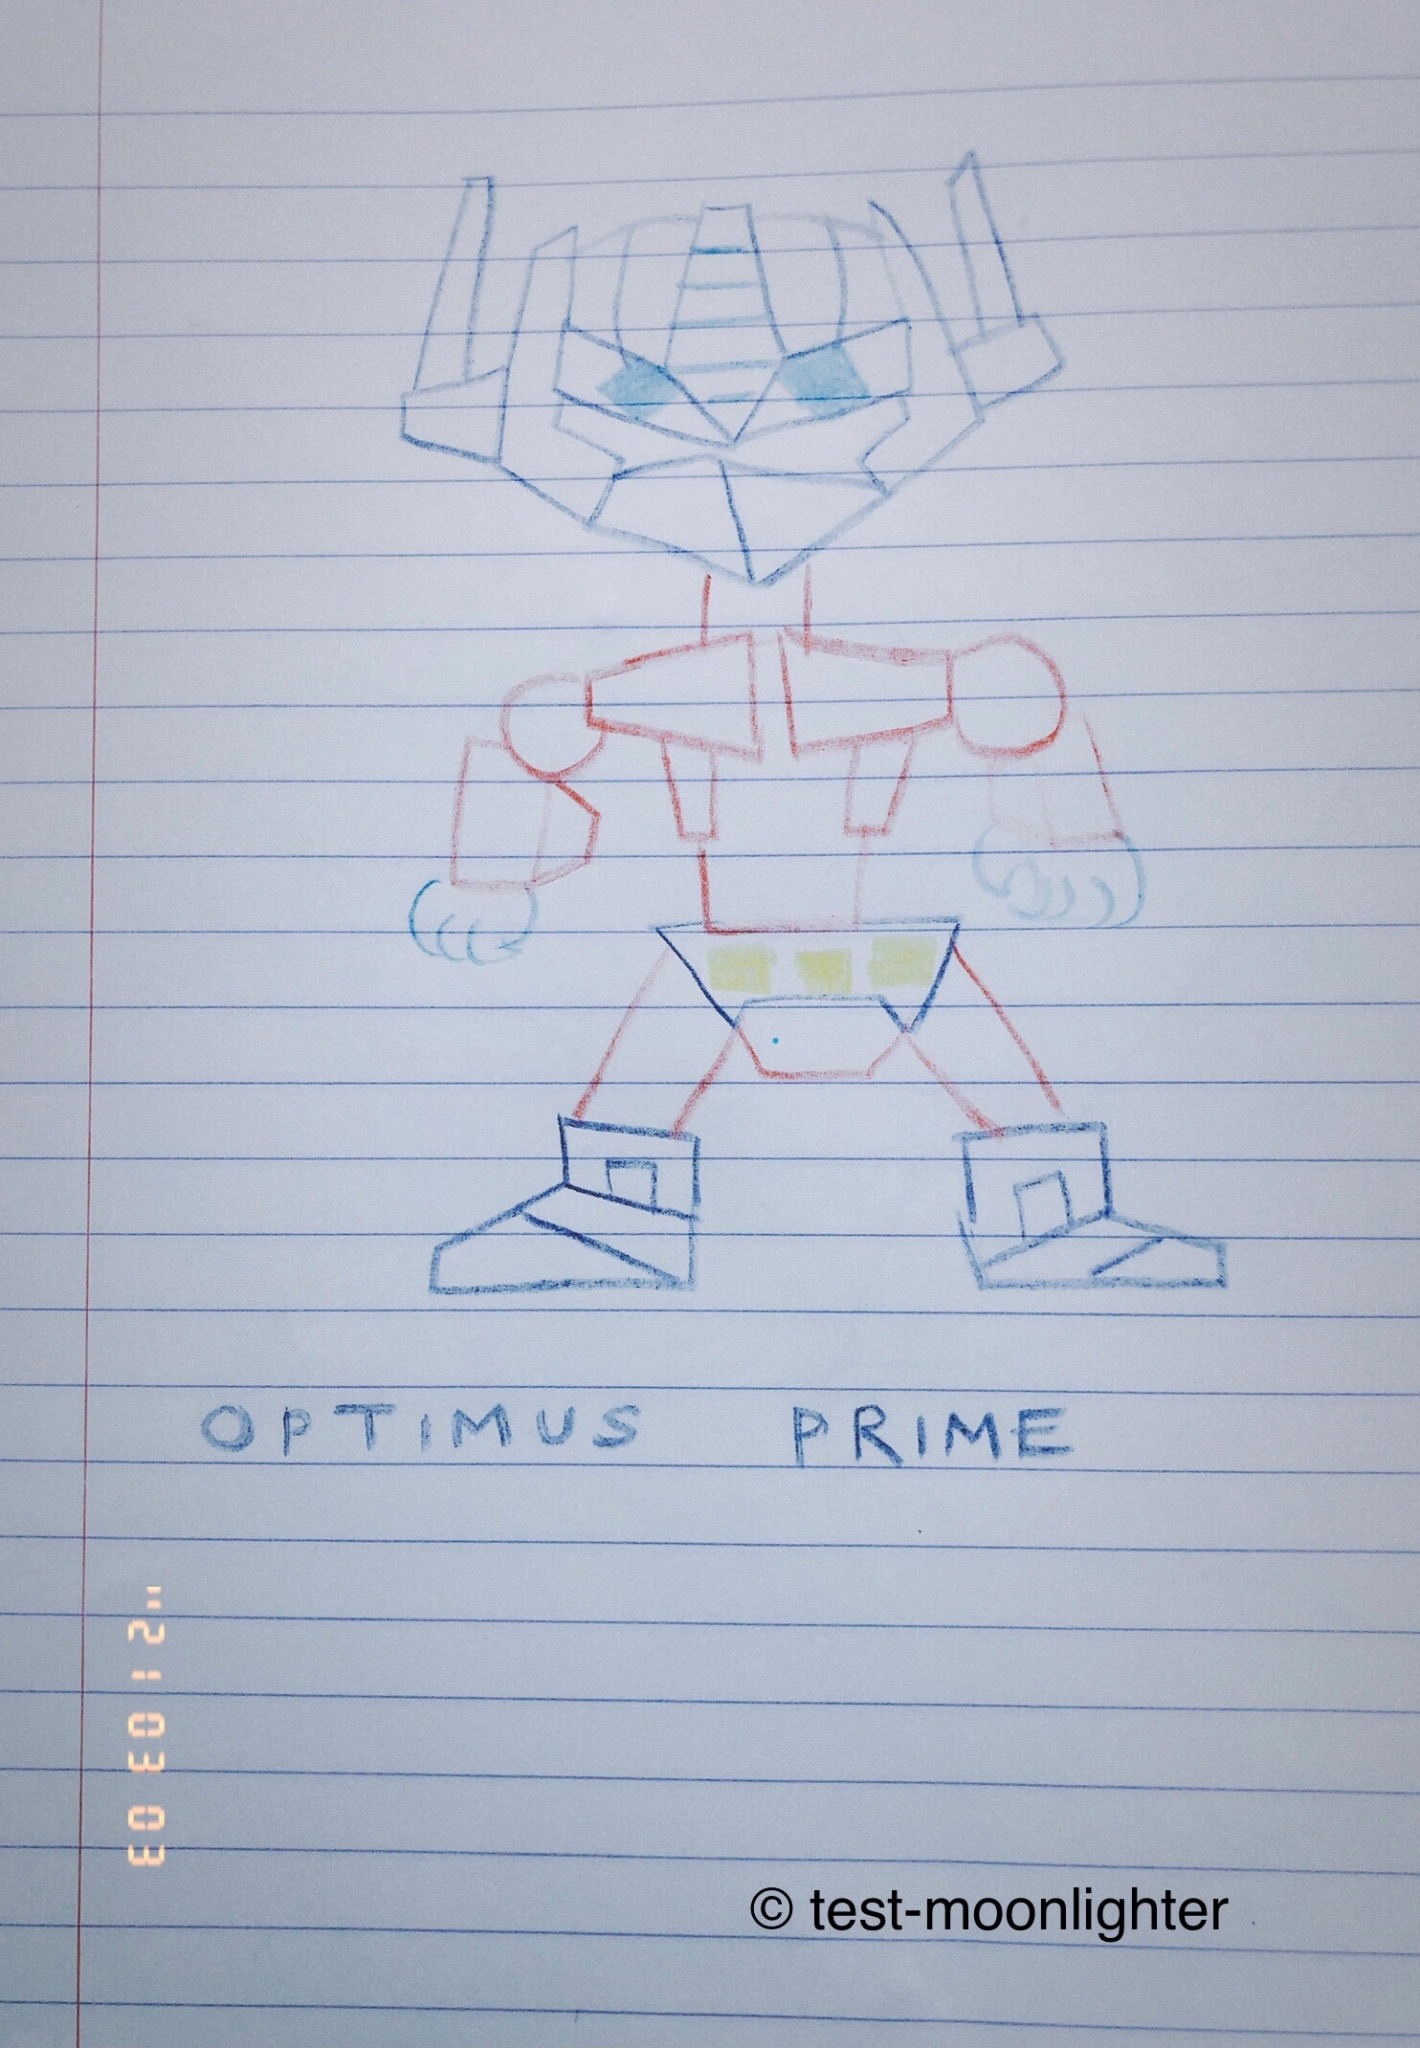 OPTIMUS PRIME
'' 2 1 03 03
© test-moonlighter